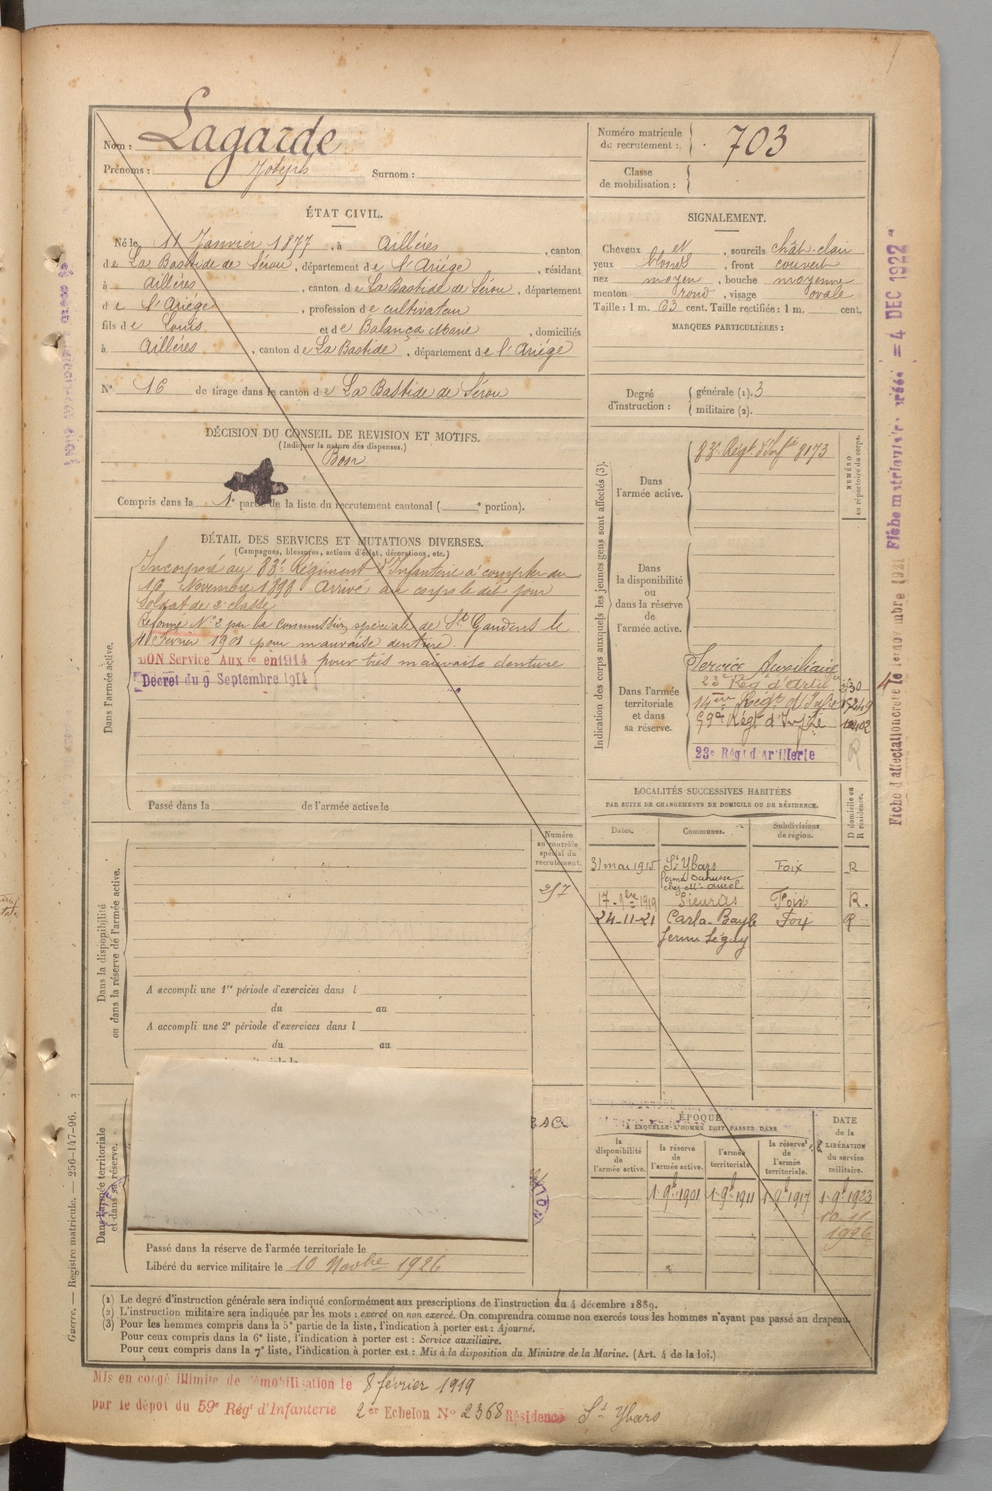 Nom : Lagarde
Prénoms : Joseph Surnom :
Numéro matricule du recrutement : 703
Classe de mobilisation :
ÉTAT CIVIL.
Né le 11 Janvier 1877, à Aillères, canton
de La Bastide de Sérou, département de l'Ariège, résidant
à Aillères, canton de La Bastide de Sérou, département
de l'Ariège, profession de cultivateur
fils de Louis et de Balança Marie, domiciliés
à Aillères, canton de La Bastide, département de l'Ariège
N° 16 de tirage dans le canton de La Bastide de Sérou
SIGNALEMENT.
Cheveux et, sourcils chât-clair
yeux blonds, front couvert
nez moyen, bouche moyenne
menton rond, visage ovale
Taille : 1 m. 63 cent. Taille rectifiée : 1 m. cent.
MARQUES PARTICULIÈRES :
Degré d'instruction : générale (1). 3
militaire (2).
DÉCISION DU CONSEIL DE REVISION ET MOTIFS.
(Indiquer la nature des dispenses.)
Bon
Compris dans la 1e partie de la liste du recrutement cantonal ( e portion).
DÉTAIL DES SERVICES ET MUTATIONS DIVERSES.
(Campagnes, blessures, actions d'éclat, décorations, etc.)
Dans l'armée active.
Incorporé au 83e Régiment d'Infanterie à compter du
16 Novembre 1898 Arrivé au corps le dit jour
Soldat de 2e classe
Réformé N°2 par la commission spéciale de St Gaudens le
Février 1901 pour mauvaise denture.
BON Service Auxre en 1914 pour très mauvaise denture
Décret du 9 Septembre 1914
Passé dans la de l'armée active le
Indication des corps auxquels les jeunes gens sont affectés (3).
NUMÉRO au répertoire du corps.
Dans l'armée active.
83e Régt d'Infie 8173
Dans la disponibilité ou dans la réserve de l'armée active.
Dans l'armée territoriale et dans sa réserve.
Service Auxiliaire
23e Rég d'Artie 330
14ème Régt d'Infie 15249
59e Régt d'Infie
23e Régt d'Artillerie R
LOCALITÉS SUCCESSIVES HABITÉES
PAR SUITE DE CHANGEMENTS DE DOMICILE OU DE RÉSIDENCE.
Dates. Communes. Subdivisions de région. D domicile ou R résidence.
31 mai 1915 St Ybars Foix R
17-1919 Sieuras Foix R.
24-11-21 Carla-Bayle Foix R
ferme Séguy
Numéro au contrôle spécial du recrutement.
257
Dans la disponibilité ou dans la réserve de l'armée active.
A accompli une 1re période d'exercices dans l
du au
A accompli une 2e période d'exercices dans l
du au
Dans l'armée territoriale et dans sa réserve.
Passé dans la réserve de l'armée territoriale le
Libéré du service militaire le 10 Novbre 1926
ÉPOQUE
A LAQUELLE L'HOMME DOIT PASSER DANS
la disponibilité de l'armée active.
la réserve de l'armée active.
l'armée territoriale.
la réserve de l'armée territoriale.
DATE de la LIBÉRATION du service militaire.
1 9b 1901 1 9b 1911 1 9b 1917 1 9b 1923
10-11
1926
(1) Le degré d'instruction générale sera indiqué conformément aux prescriptions de l'instruction du 4 décembre 1889.
(2) L'instruction militaire sera indiquée par les mots : exercé ou non exercé. On comprendra comme non exercés tous les hommes n'ayant pas passé au drapeau.
(3) Pour les hommes compris dans la 5e partie de la liste, l'indication à porter est : Ajourné.
Pour ceux compris dans la 6e liste, l'indication à porter est : Service auxiliaire.
Pour ceux compris dans la 7e liste, l'indication à porter est : Mis à la disposition du Ministre de la Marine. (Art. 4 de la loi.)
Mis en congé illimité de démobilisation le 8 février 1919
par le dépôt du 59e Régt d'Infanterie 2er Echelon N° 2368 Résidence St Ybars
Guerre. — Registre matricule. — 256-147-96.
Fiche d'affectation créée le 1er novembre 1921 Fiche matriculaire créée = 4 DEC 1922